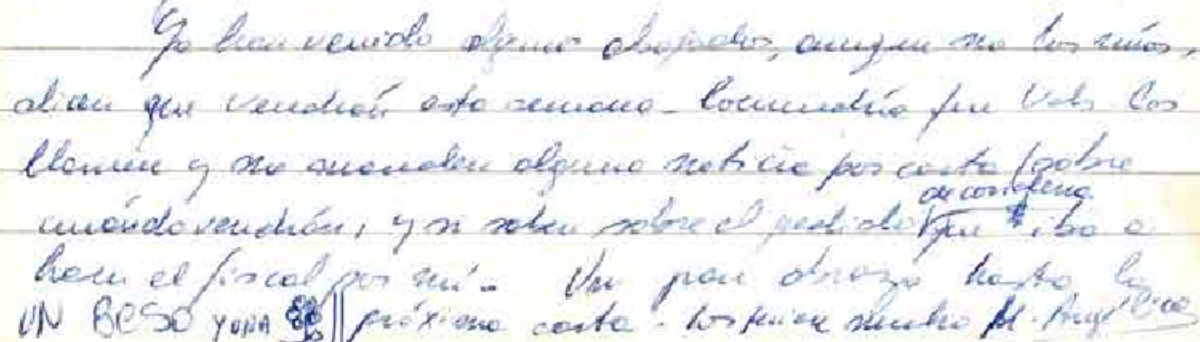 Ya han venido algunos abogados, aunque no los míos,
dicen que vendrán esta semana - Convendría que Uds los
llamen y me manden alguna noticia por carta (sobre
de condena
cuándo vendrán, y si saben sobre el pedido que iba a
hacer el fiscal por mí. - Un gran abrazo hasta la
UN BESO y UNA próxima carta - los quiere mucho M. Angélica